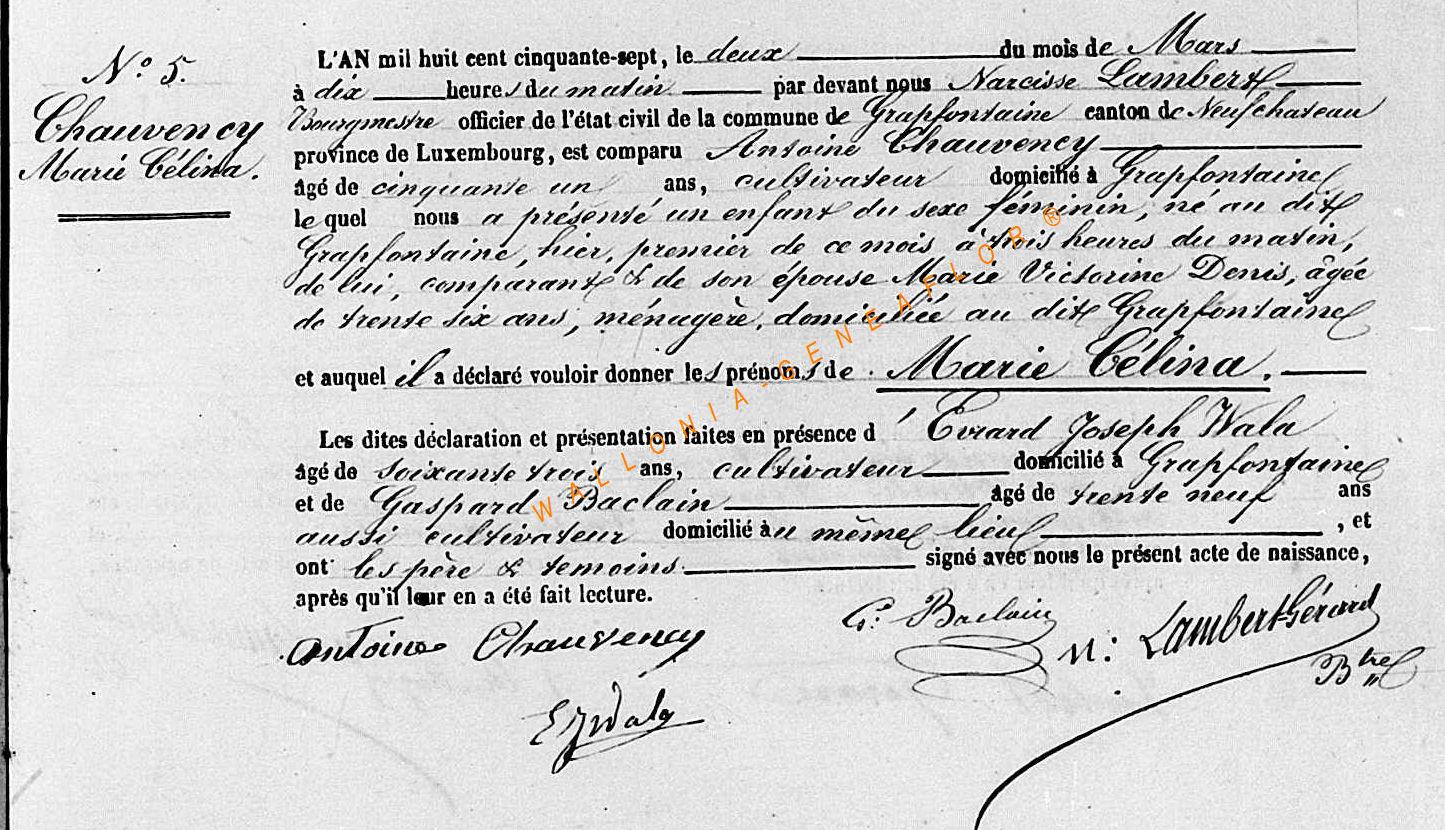 N.o 5.
Chauvency
Marie Célina.
L'AN mil huit cent cinquante-sept, le deux du mois de Mars
à dix heures du matin par devant nous Narcisse Lambert
Bourgmestre officier de l'état civil de la commune de Grapfontaine canton de Neufchateau
province de Luxembourg, est comparu Antoine Chauvency
âgé de cinquante un ans, cultivateur domicilié à Grapfontaine
lequel nous a présenté un enfant du sexe féminin, né au dit
Grapfontaine, hier, premier de ce mois à trois heures du matin,
de lui, comparant & de son épouse Marie Victorine Denis, âgée
de trente six ans, ménagère, domiciliée au dit Grapfontaine
et auquel il a déclaré vouloir donner les prénoms de Marie Célina.
Les dites déclaration et présentation faites en présence d'Evrard Joseph Wala
âgé de soixante trois ans, cultivateur domicilié à Grapfontaine
et de Gaspard Baclain âgé de trente neuf ans
aussi cultivateur domicilié au même lieu, et
ont les père & temoins signé avec nous le présent acte de naissance,
après qu'il leur en a été fait lecture.
G. Baclain
Antoine Chauvency
N. Lambert-Gérard
Btre
EJWala
WALLONIA-GENEAFLOR®